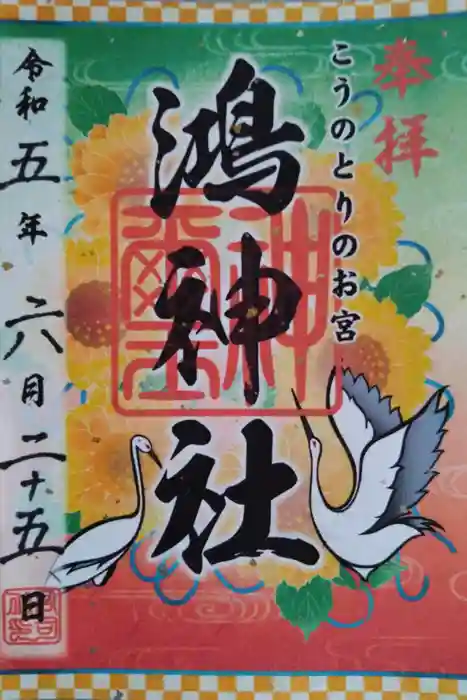 奉拝
こうのとりのお宮
鴻神社
令和五年六月二十五日